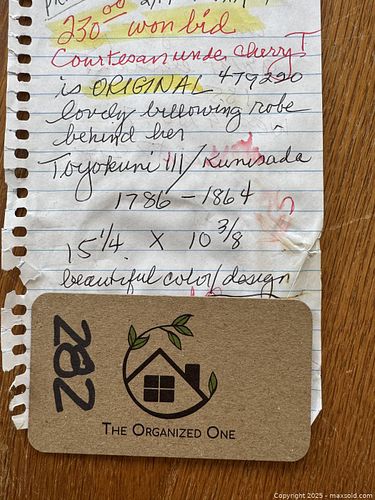 230.00 won bid
Courtesan under cherry T
is ORIGINAL 479220
lovely billowing robe
behind her
Toyokuni III/Kunisada
1786 - 1864
15 1/4 x 10 3/8
beautiful color/design
282
THE ORGANIZED ONE
Copyright 2025 - maxsold.com